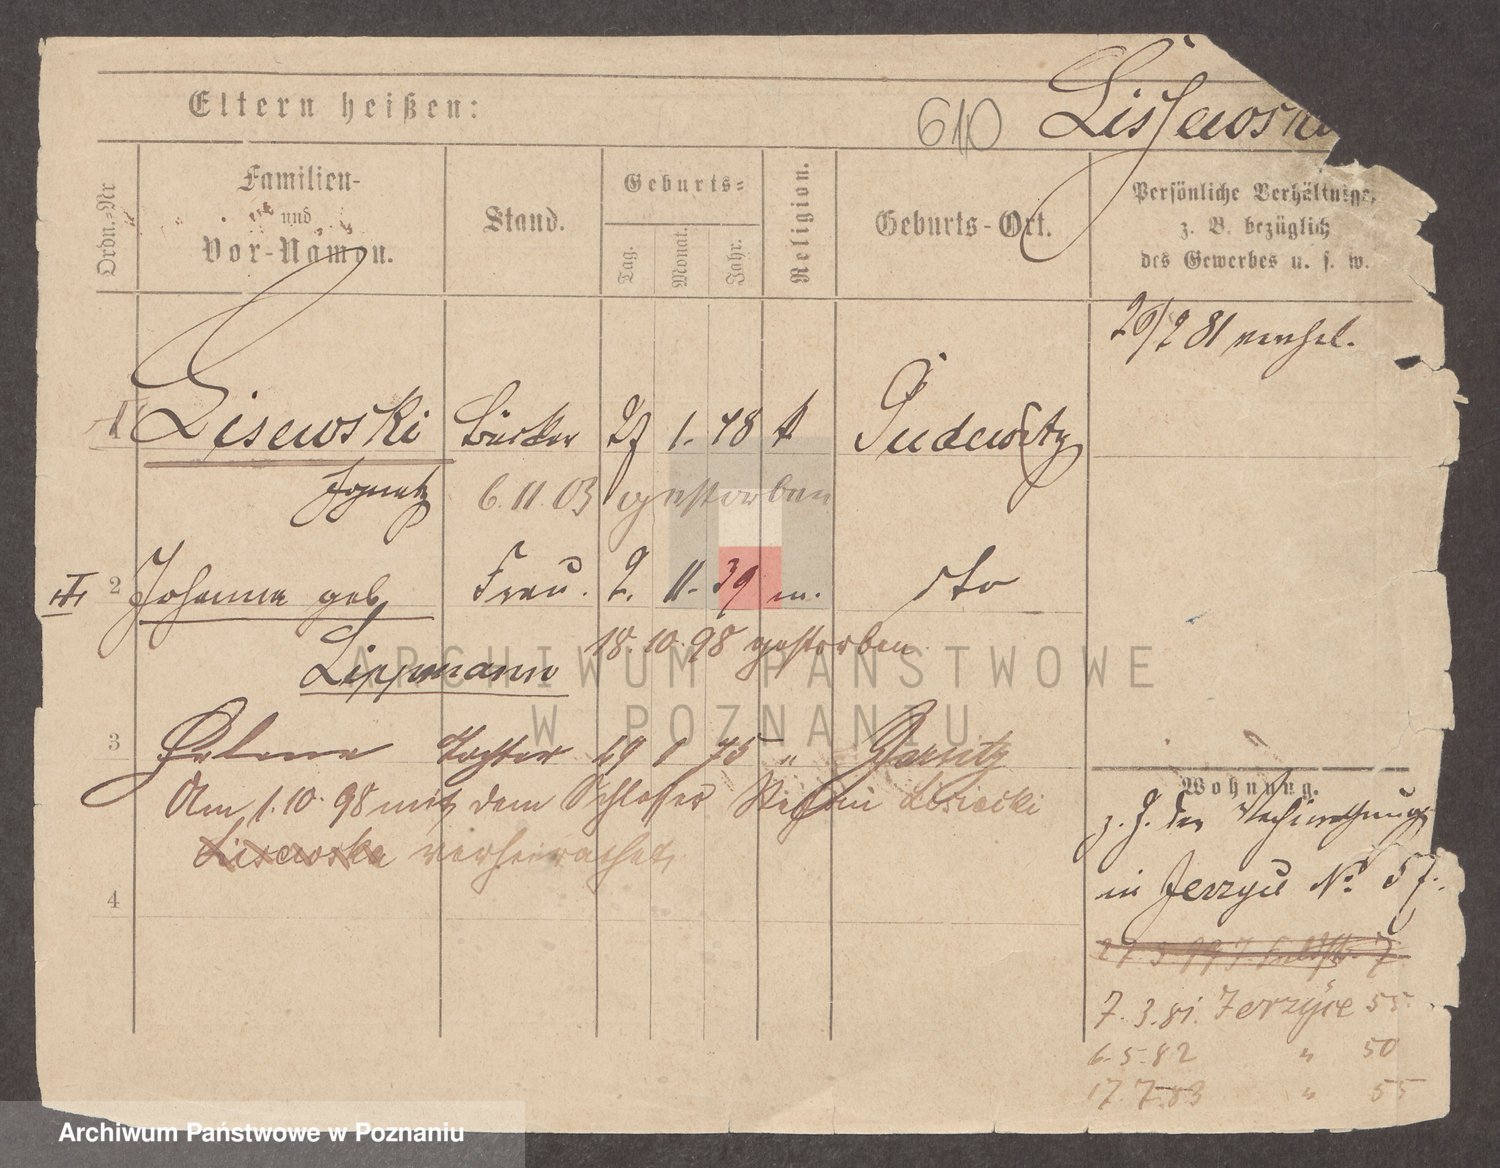 Eltern heißen:
610 Lissewski
Ordn.-Nr
Familien-
und
Vor-Namen.
Stand.
Geburts-
Tag.
Monat.
Jahr.
Religion.
Geburts-Ort.
Persönliche Verhältnisse,
z. B. bezüglich
des Gewerbes u. s. w.
20/2 81
1 Lisewski 1. 48 k Pudewitz
Ignatz 6. 11. 03 gestorben
III 2 Johanna geb Frau. 2. 11. 39 m. dto
Lippmann 18. 10. 98 gestorben
3 Helene Tochter 29 1 75 "
Am 1. 10. 98 mit dem Schlosser Stefan Lisiecki
Lisewska verheirathet
4
Wohnung.
z. Z. der
in Jerzyce No 57.
7. 3. 81. Jerzyce 55
6. 5. 82 " 50
17. 7. 83 " 55
ARCHIWUM PAŃSTWOWE
W POZNANIU
Archiwum Państwowe w Poznaniu